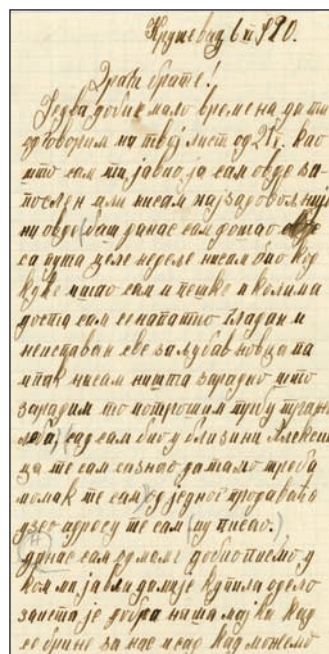 Крушевац 6 II 920.
Драги брате!
Једва добих мало времена да ти
одговорим на твој лист од 21 I. као
што сам ти јавио, ја сам овде за-
послен али нисам најзадовољнији
ни овде (баш данас сам дошао
са пута целе недеље нисам био код
куће ишао сам и пешке и колима
доста сам се напатио гладан и
неиспаван све за љубав новца па
ипак нисам ништа зарадио што
зарадим то потрошим
(сад сам био у близини Алексин
ца те сам сазнао да тамо треба
момак те сам од једног продавача
узео адресу те сам му писао.)
данас сам од маме добио писмо у
ком ми јавља да ми је купила одело
заиста је добра наша мајка кад
се брине за нас и сад кад можемо